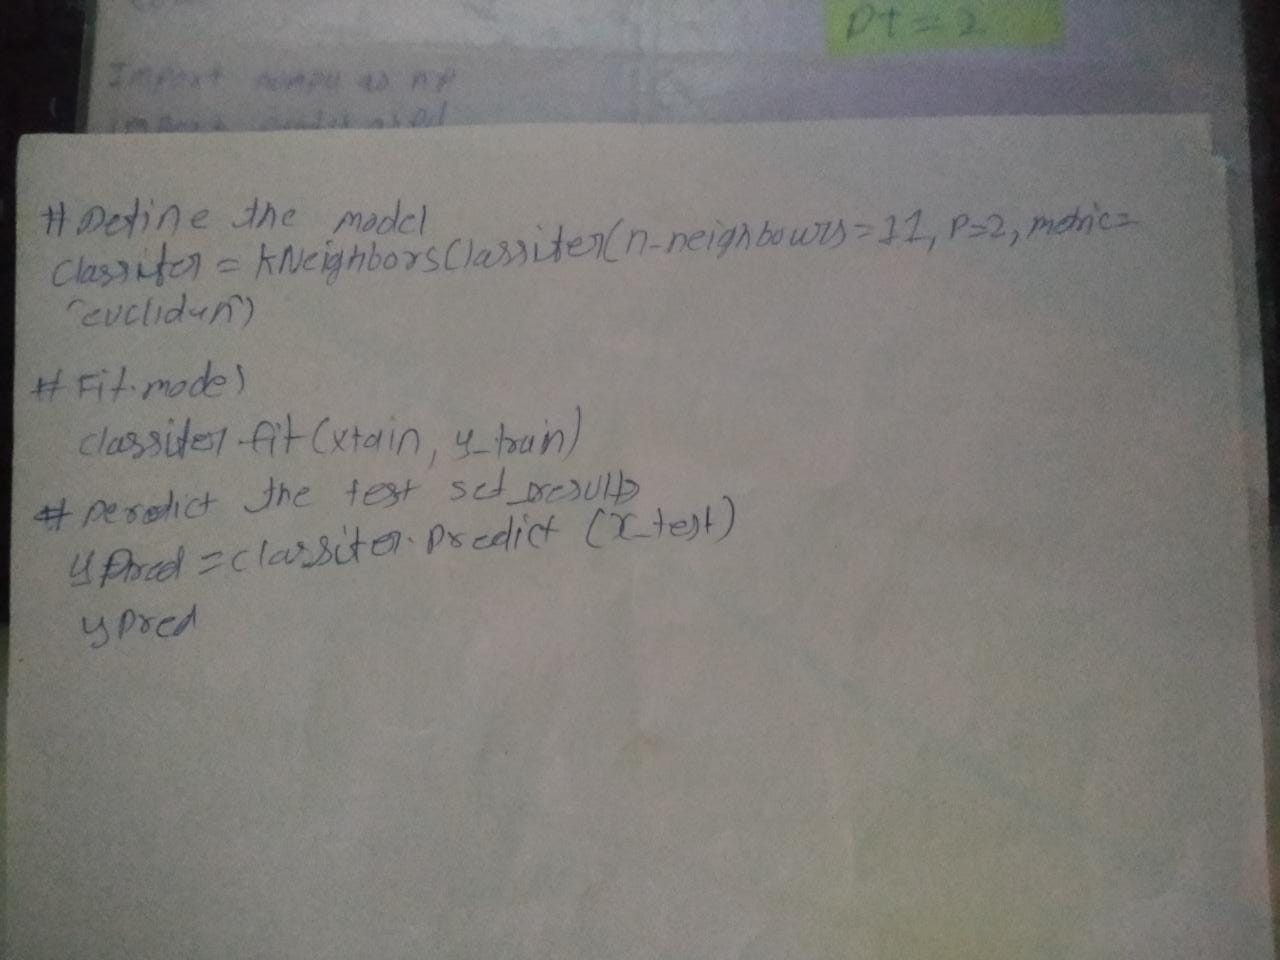 Pt = 2
Import numpy as np
import pandas as pd
# Define the model
Classifer = KNeighborsClassifer(n-neighbours=11, P=2, metric=
"euclidun")
# Fit model
classifer.fit(xtain, y_train)
# Peredict the test set_results
y Pred = classifer.predict (X_test)
y pred